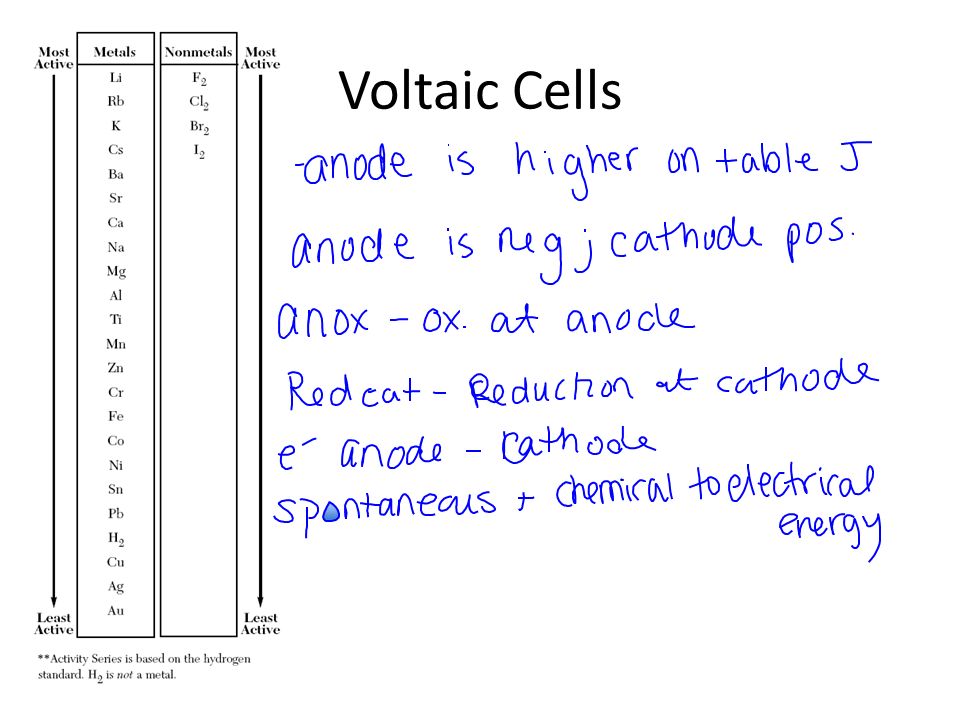 Voltaic Cells
Most Active
Metals
Nonmetals
Most Active
Li F₂
Rb Cl₂
K Br₂
Cs I₂
Ba
Sr
Ca
Na
Mg
Al
Ti
Mn
Zn
Cr
Fe
Co
Ni
Sn
Pb
H₂
Cu
Ag
Au
Least Active
Least Active
**Activity Series is based on the hydrogen
standard. H₂ is not a metal.
-anode is higher on table J
anode is neg; cathode pos.
anox – ox. at anode
Redcat – Reduction at cathode
e⁻ anode – cathode
spontaneous + chemical to electrical
energy